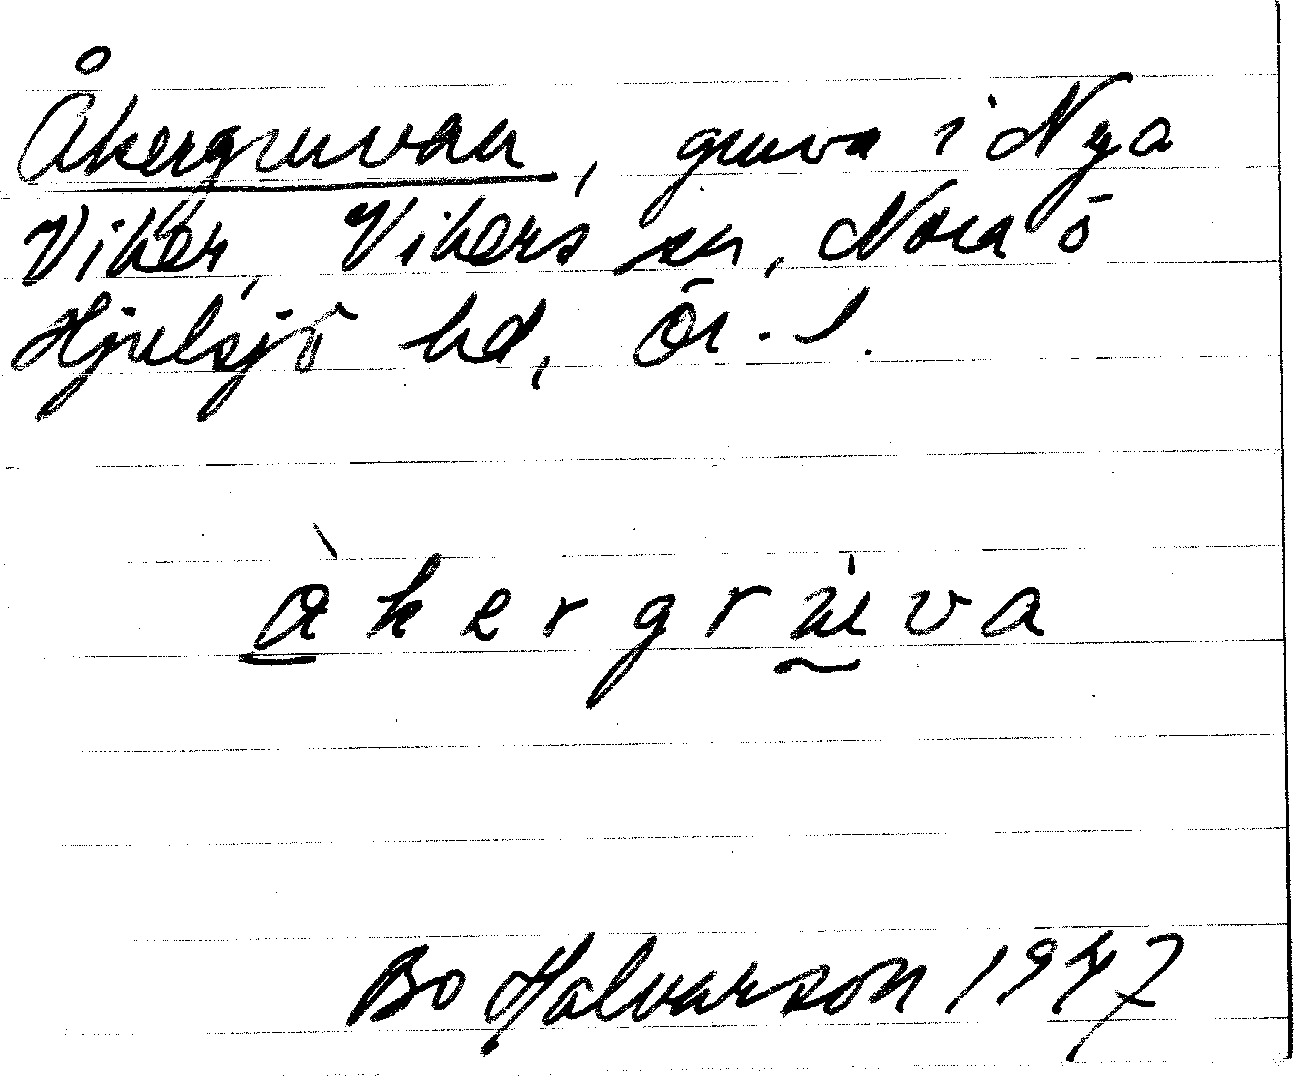 Åkergruvan, gruva i Nya
Viker, Vikers sn, Nora o
Hjulsjö hd, Ör. l.
åkergruva
Bo Halvarson 1947